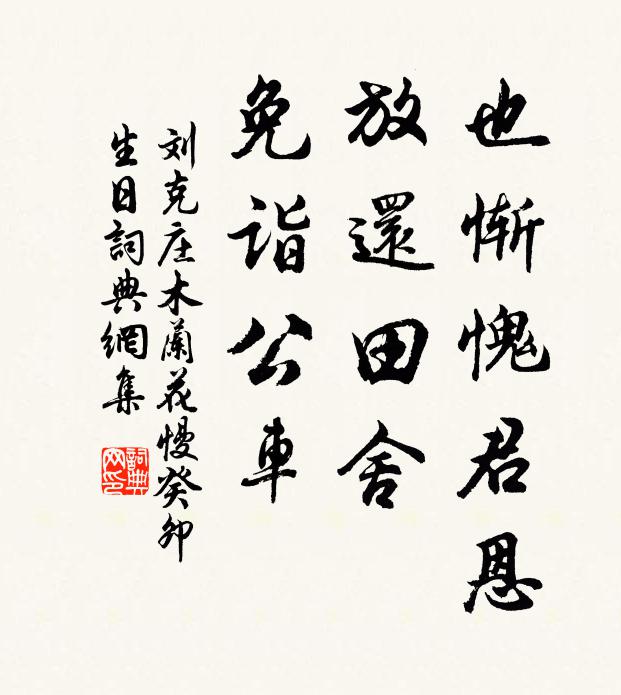 也慚愧君恩
放還田舍
免詣公車
刘克庄木蘭花慢癸卯
生日詞典網集
詞典
网印